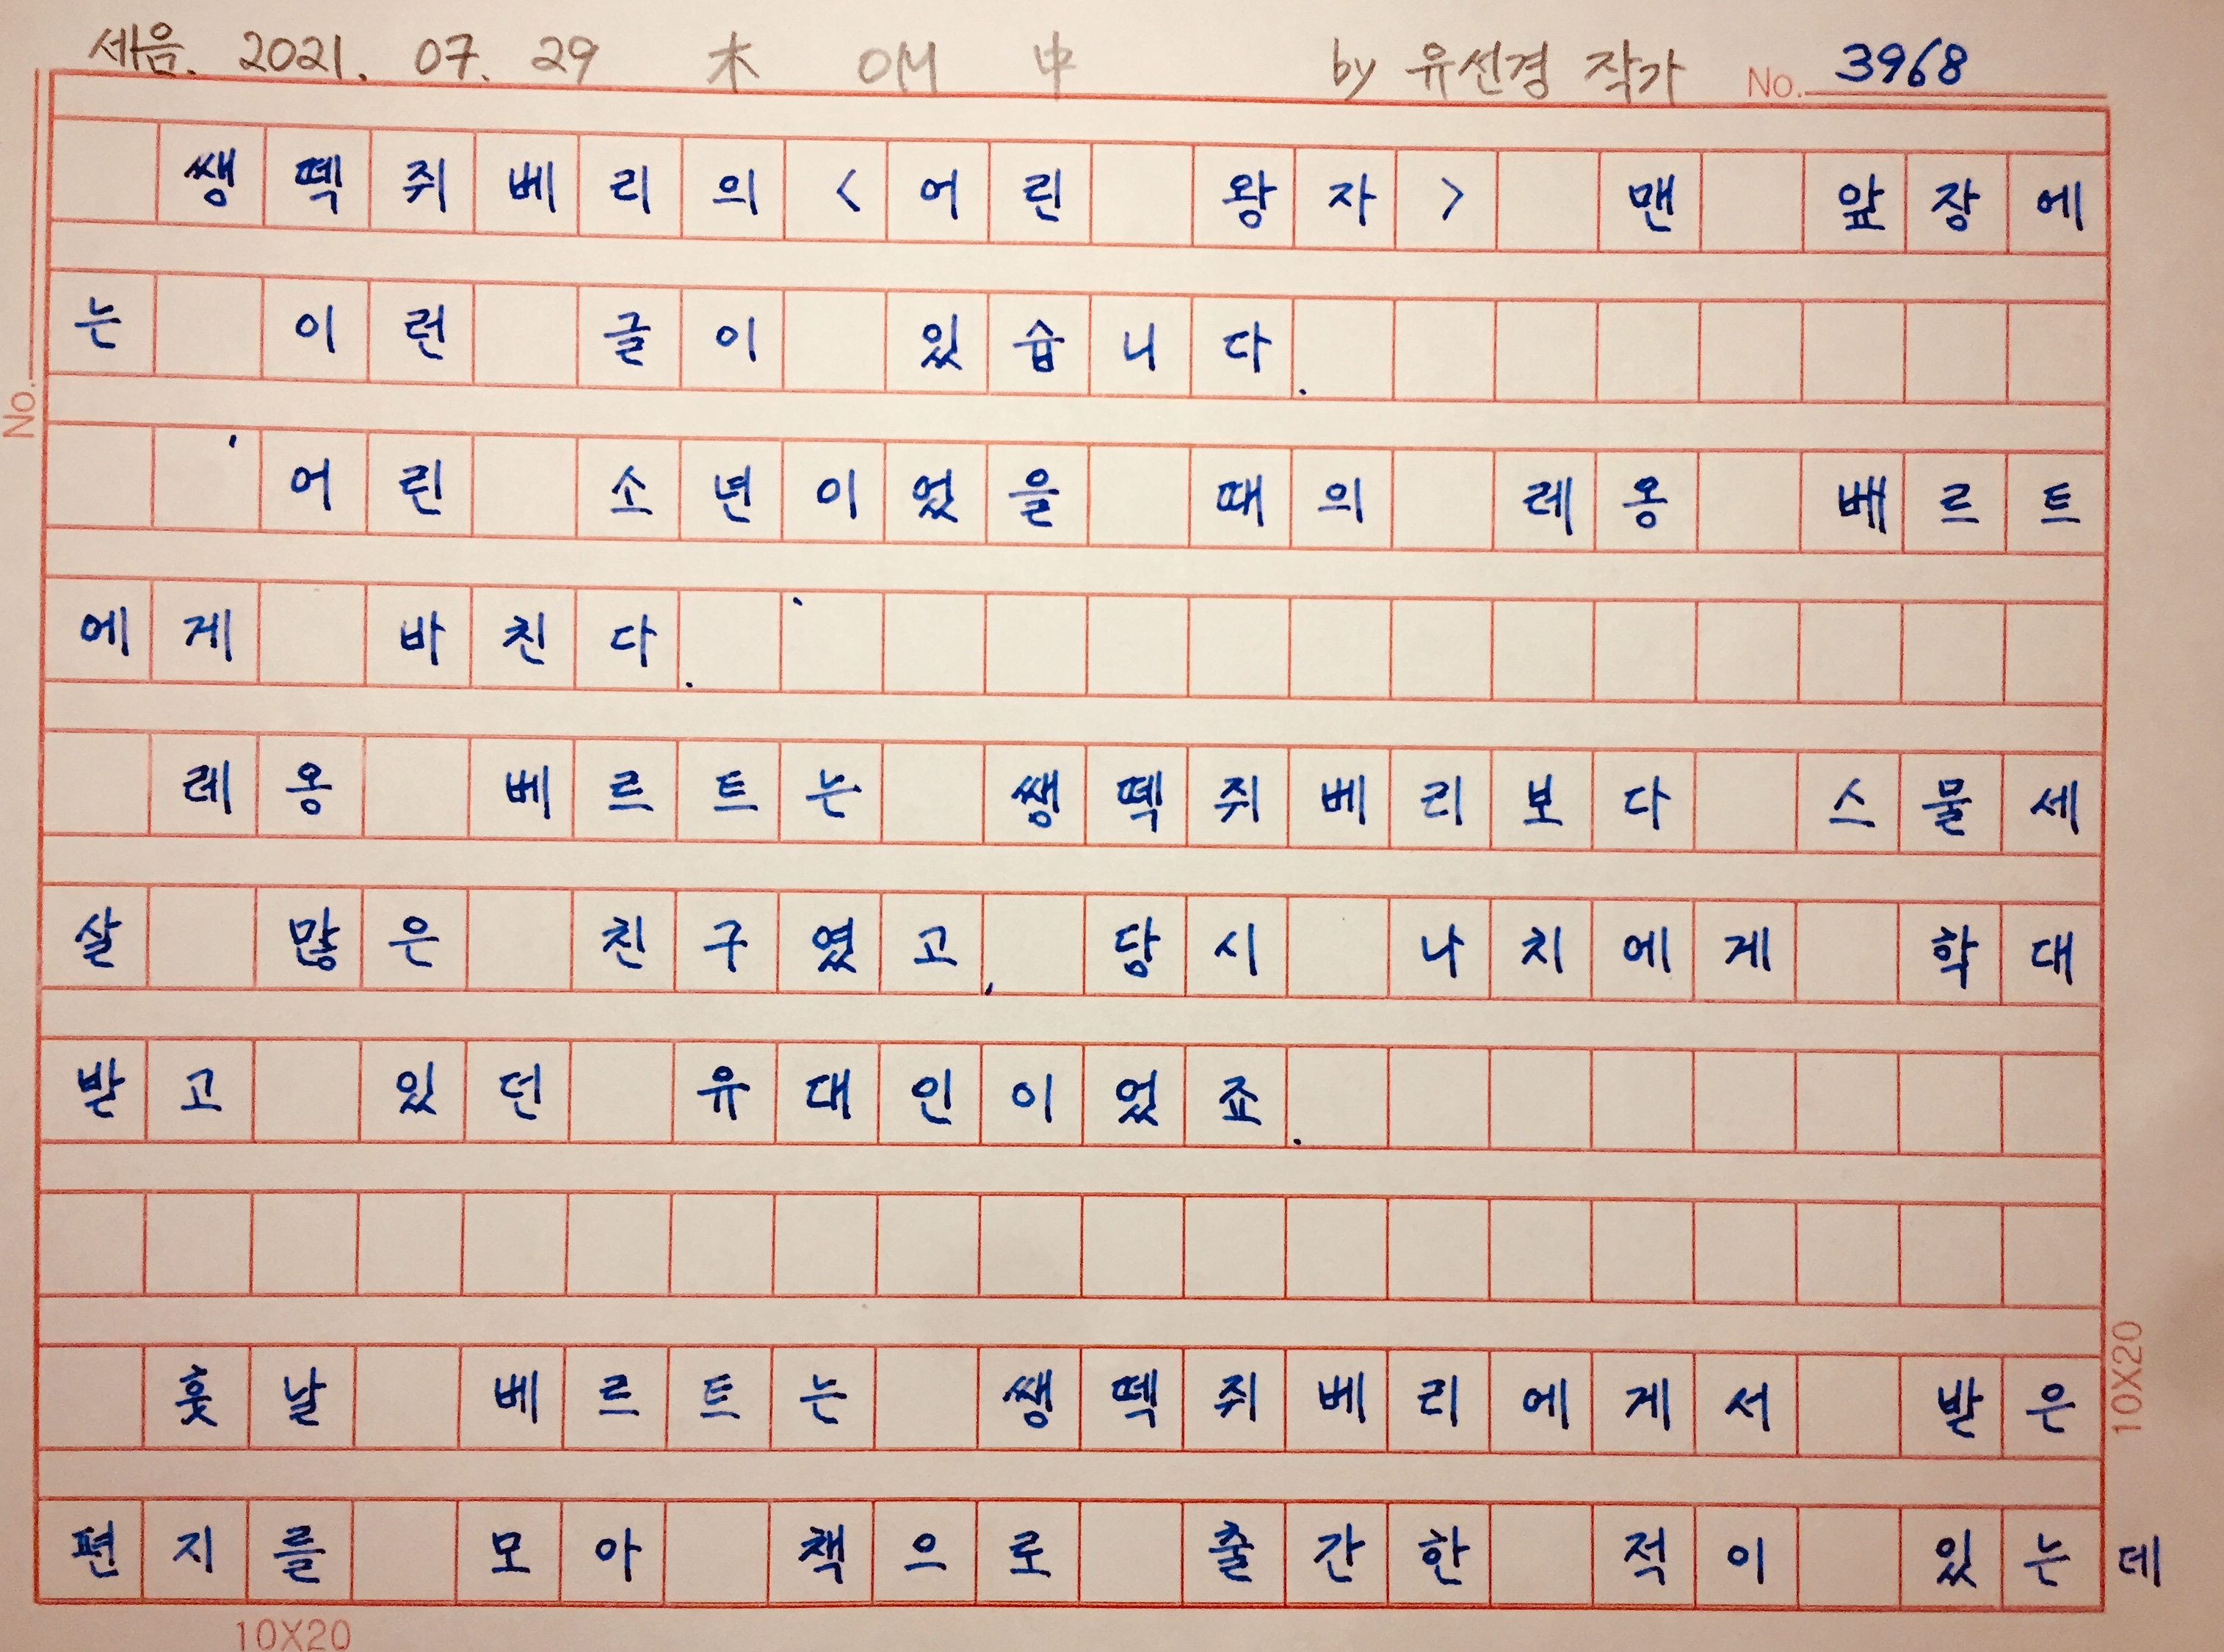 세음. 2021. 07. 29 木 AM 中 by 유선경 작가 No. 3968
쌩떽쥐베리의 <어린 왕자> 맨 앞장에
는 이런 글이 있습니다.
'어린 소년이었을 때의 레옹 베르트
에게 바친다.'
레옹 베르트는 쌩떽쥐베리보다 스물세
살 많은 친구였고, 당시 나치에게 학대
받고 있던 유대인이었죠.
훗날 베르트는 쌩떽쥐베리에게서 받은
편지를 모아 책으로 출간한 적이 있는데
No.
10X20
10X20